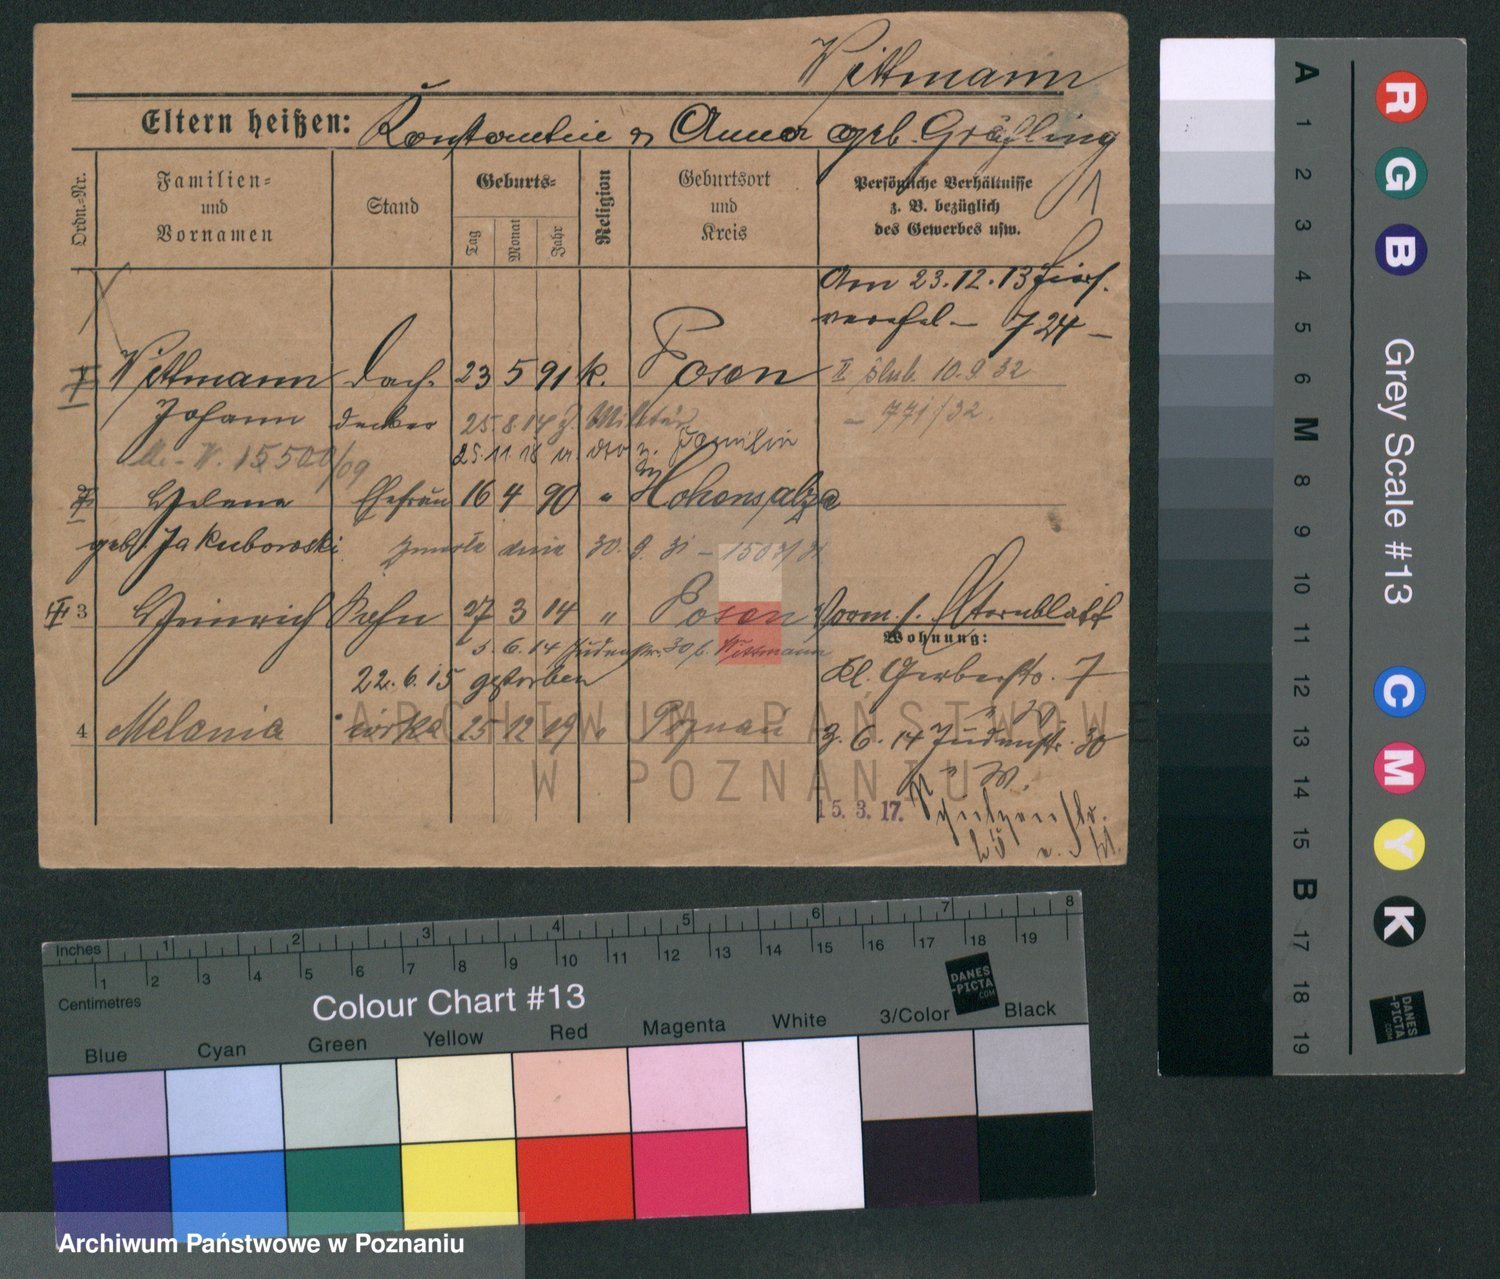 Wittmann
Eltern heißen: Konstantin u Anna geb. Gräfling
Ordn.-Nr.
Familien-
und
Vornamen
Stand
Geburts-
Tag
Monat
Jahr
Religion
Geburtsort
und
Kreis
Persönliche Verhältnisse
z. B. bezüglich
des Gewerbes usw.
Am 23.12.13
verehel. – 724 –
Wittmann Dach- 23 5 91 k. Posen II ślub. 10.9 32
Johann decker 25.8.14 z. Militär – 771/32.
25.11.18 z. Familie
Helena Ehefrau 16 4 90 " Hohensalza
geb. Jakubowski zmarła dnia 30. 9. 31 – 1507/31
3 Heinrich Sohn 27 3 14 " Posen Vorm. s. Sternblatt
5. 6. 14 Judenstr. 30 b. Wittmann
Wohnung:
22. 6. 15 gestorben Kl. Gerberstr. 7
4 Melania córka 25 12 19 " Poznań
3. 6. 14 Judenstr. 30
b. W.
15. 3. 17.
ARCHIWUM PAŃSTWOWE
W POZNANIU
Inches 1 2 3 4 5 6 7 8
1 2 3 4 5 6 7 8 9 10 11 12 13 14 15 16 17 18 19
Centimetres
Colour Chart #13
DANES
-PICTA
.COM
Blue Cyan Green Yellow Red Magenta White 3/Color Black
A 1 2 3 4 5 6 M 8 9 10 11 12 13 14 15 B 17 18 19
R G B
Grey Scale #13
C M Y K
DANES
-PICTA
.COM
Archiwum Państwowe w Poznaniu